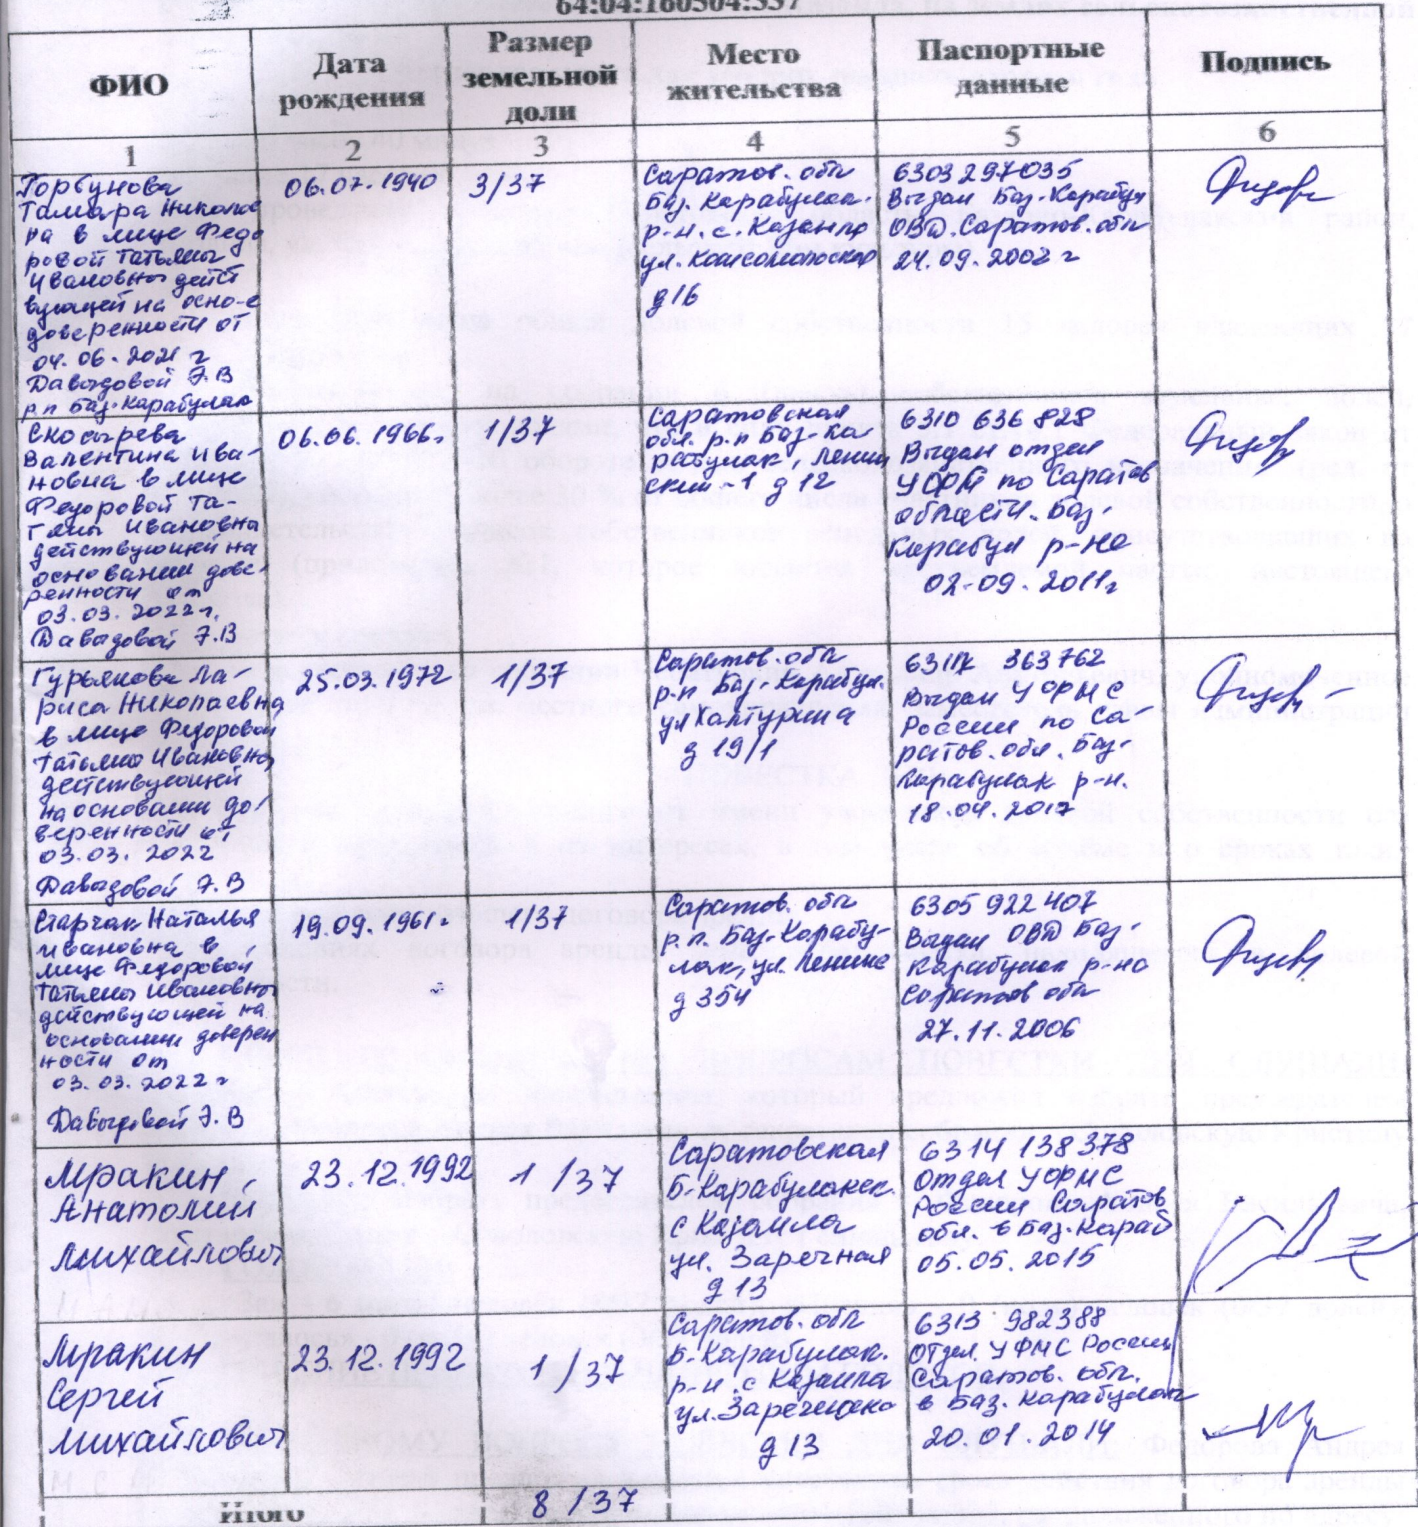 64:04:160304:337
ФИО
Дата рождения
Размер земельной доли
Место жительства
Паспортные данные
Подпись
1
2
3
4
5
6
Горбунова
Тамара Николаев
на в лице Федо
ровой Татьяны
Ивановны дейст
вующей на осно-е
доверенности от
04.06.2021 г
Давыдовой Э.В
р.п Баз-Карабулак
06.07.1940
3/37
Саратов. обл
Баз. Карабулак.
р-н. с. Казанла
ул. Комсомольская
д 16
6303 297035
Выдан Баз-Карабул
ОВД Саратов. обл
24.09.2002 г
Скосырева
Валентина Ива-
новна в лице
Федоровой Та-
тьяны Ивановна
действующей на
основании дове-
ренности от
03.03.2022 г.
Давыдовой Э.В
06.06.1966г
1/37
Саратовская
обл. р.п Баз-Ка
рабулак Ленин
ский-1 д 12
6310 636828
Выдан отдел
УФМС по Саратов
области Баз-
Карабул р-на
02.09.2011г
Гурьянова Ла-
риса Николаевна
в лице Федоровой
Татьяны Ивановны
действующей
на основании до-
веренности от
03.03.2022
Давыдовой Э.В
25.03.1972
1/37
Саратов. обл
р.п Баз-Карабул.
ул Халтурина
д 19/1
363762
Выдан УФМС
России по Са-
ратов. обл. Баз-
Карабулак р-н.
18.04.2017
Старчак Наталья
Ивановна в
лице Федоровой
Татьяны Ивановны
действующей на
основании доверен
ности от
03.03.2022 г
Давыдовой Э.В
19.09.1961г
1/37
Саратов. обл
р.п. Баз-Карабу-
лак, ул. Ленина
д 354
6305 922407
Выдан ОВД Баз-
Карабулак р-на
Саратов обл
27.11.2006
Мракин
Анатолий
Михайлович
23.12.1992
1/37
Саратовская
Б-Карабулакск.
с Казанла
ул. Заречная
д 13
6314 138378
Отдел УФМС
России Саратов
обл. в Баз. Караб
05.05.2015
М.А.М.
Мракин
Сергей
Михайлович
23.12.1992
1/37
Саратов. обл
Б-Карабулак.
р-н. с Казанла
ул. Зареченская
д 13
6313 982388
Отдел УФМС России
Саратов. обл.
в Баз. Карабулак
20.01.2014
М С
Итого
8/37